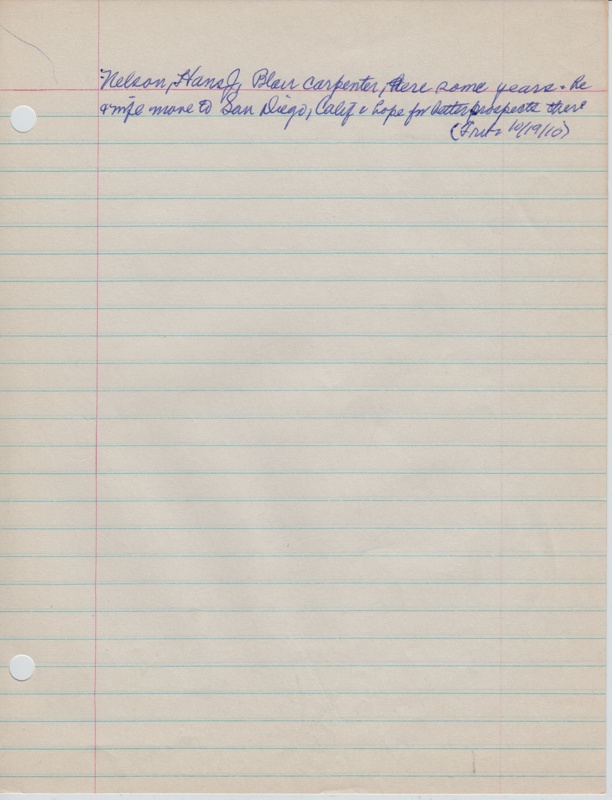 Nelson, Hans J, Blair carpenter, here some years. He
& wife move to San Diego, Calif & hope for better prospects there
(Trib 10/19/10)